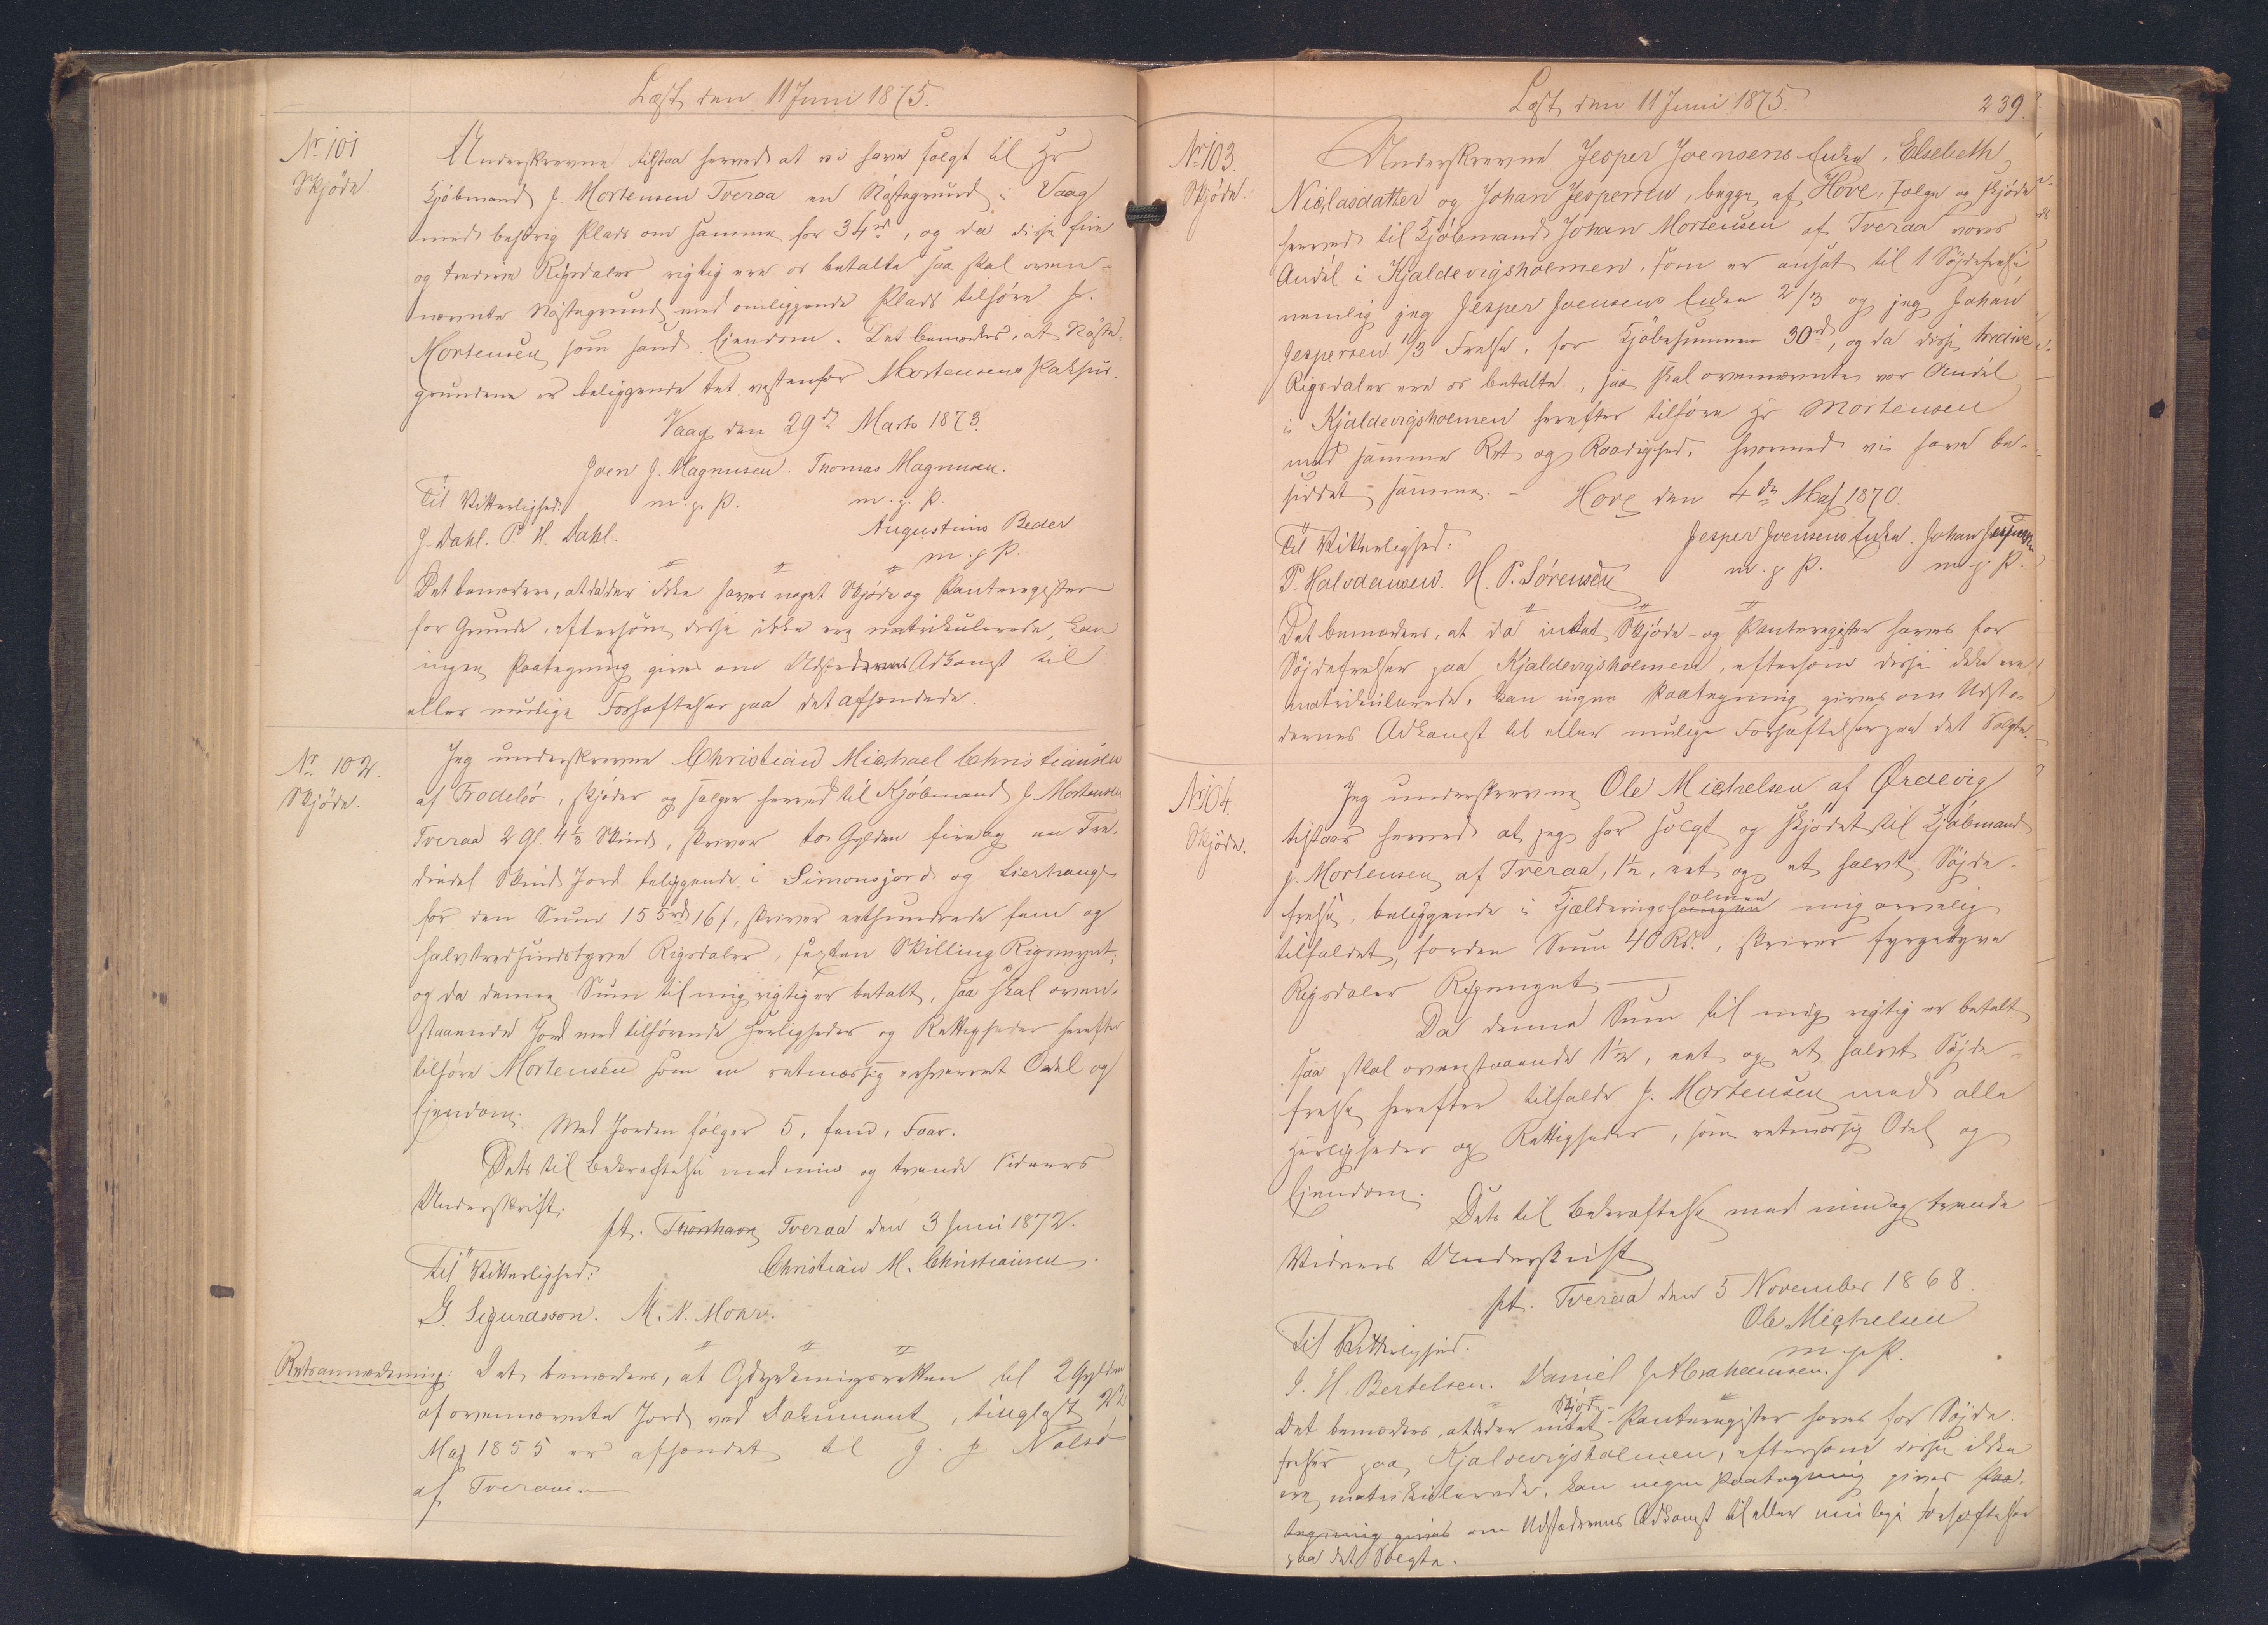 Læst den 11 Juni 1875.
Nr 101
Skjøde.
Underskrevne tilstaa herved at vi have solgt til Hr
Kjøbmand J. Mortensen Tveraa en Nøstegrund i Vaag
med behørig Plads om samme for 34 rd, og da disse fire
og tredive Rigsdaler rigtig ere os betalte saa skal oven-
nævnte Nøstegrund med omliggende Plads tilhøre Hr.
Mortensen som sand Eiendom. Det bemærkes, at Nøste-
grundene er beliggende tet vestenfor Mortensens Pakhus.
Vaag den 29de Marts 1873.
Joen J. Magnusen. Thomas Magnusen.
Til Vitterlighed: m. f. P. m. f. P.
J. Dahl. P. H. Dahl. Augustinus Beder
m. f. P.
Det bemærkes, at da der ikke haves noget Skjøde og Panteregister
for Grunde, eftersom disse ikke ere matrikulerede, kan
ingen Paategning gives om Udstedernes Adkomst til
eller mulige Forhæftelser paa det afhændede.
Nr 102.
Skjøde.
Jeg underskrevne Christian Michael Christiansen
af Frodebø, skjøder og sælger herved til Kjøbmand J. Mortensen
Tveraa 2 Gl. 4 1/3 Skind, skriver to Gylden fire og en Tre-
diedel Skind Jord beliggende i Simonsjord og Lierhauge
for den Sum 155 rd 16 s, skriver eethundrede fem og
halvtredsindstyve Rigsdaler, sexten Skilling Rigsmynt,
og da denne Sum til mig rigtig er betalt, saa skal oven-
staaende Jord med tilhørende Herligheder og Rettigheder herefter
tilhøre Mortensen som en retmæssig erhvervet Odel og
Ejendom. Med Jorden følger 5, fem, Faar.
Dets til Bekræftelse med min og tvende Vidners
Underskrift.
pt. Thorshavn Tveraa den 3 Juni 1872.
Til Vitterlighed: Christian M. Christiansen.
G. Sigurdsson. M. N. Mohr.
Retsanmærkning: Det bemærkes, at Opdyrkningsretten til 2 Gylden
af ovennævnte Jord ved Dokument, tinglæst 22
Maj 1855 er afhændet til J. J. Nolsø
af Tveraa.
Læst den 11 Juni 1875. 239.
Nr 103.
Skjøde.
Underskrevne Jesper Joensens Enke, Elsebeth
Niclasdatter og Johan Jespersen, begge af Hove, sælge og skjøde
herved til Kjøbmand Johan Mortensen af Tveraa vores
Andel i Kjaldevigsholmen, som er ansat til 1 Søjdefrelse
nemlig jeg Jesper Joensens Enke 2/3 og jeg Johan
Jespersen 1/3 Frelse, for Kjøbesummen 30 rd, og da disse tredive
Rigsdaler ere os betalte, saa skal ovennævnte vor Andel
i Kjaldevigsholmen herefter tilhøre Hr Mortensen
med samme Ret og Raadighed, hvormed vi have be-
siddet samme. - Hove den 4de Maj 1870.
Til Vitterlighed: Jesper Joensens Enke. Johan Jespersen
P. Halvdansen. H. P. Sørensen m. f. P. m. f. P.
Det bemærkes, at da intet Skjøde- og Panteregister haves for
Søjdefrelser paa Kjaldevigsholmen, eftersom disse ikke ere
matrikulerede, kan ingen Paategning gives om Udste-
dernes Adkomst til eller mulige Forhæftelser paa det Solgte.
Nr 104.
Skjøde.
Jeg underskrevne Ole Michelsen af Ørdevig
tilstaar herved at jeg har solgt og skjødet til Kjøbmand
J. Mortensen af Tveraa, 1 1/2, eet og et halvt Søjde-
frelse, beliggende i Kjældevigsholmen mig arvelig
tilfaldet, for den Sum 40 Rd., skriver fyrgetyve
Rigsdaler Rigsmynt. —
Da denne Sum til mig rigtig er betalt
saa skal ovenstaaende 1 1/2, eet og et halvt Søjde-
frelse herefter tilfalde J. Mortensen med alle
Herligheder og Rettigheder, som retmæssig Odel og
Ejendom.
Dets til Bekræftelse med min og tvende
Vidners Underskrift
pt. Tveraa den 5 November 1868.
Ole Michelsen
Til Vitterlighed. m. f. P.
J. H. Bertelsen. Daniel J. Abrahamsen.
Det bemærkes, at da der intet Skjøde- Panteregister haves for Søjde-
frelser paa Kjaldevigsholmen, eftersom disse ikke
ere matrikulerede, kan ingen Paategning gives Paa-
tegning gives om Udstederens Adkomst til eller mulige Forhæftelser
paa det Solgte.